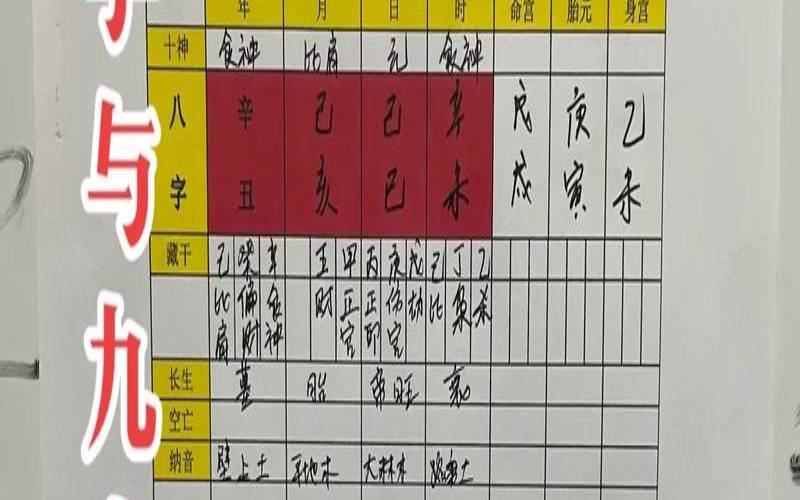 年 月 日 时 命宫 胎元 身宫
十神 食神 比肩 元 食神
八字 辛 己 己 辛 戊 庚 乙
丑 亥 巳 未 戌 寅 未
藏干 己 癸 辛 壬 甲 丙 庚 戊 己 丁 乙
比肩 偏财 食神 财 正官 正印 伤官 劫 比 枭 杀
长生 墓 胎 帝旺 衰
空亡
纳音 壁上土 平地木 大林木 路旁土
与九